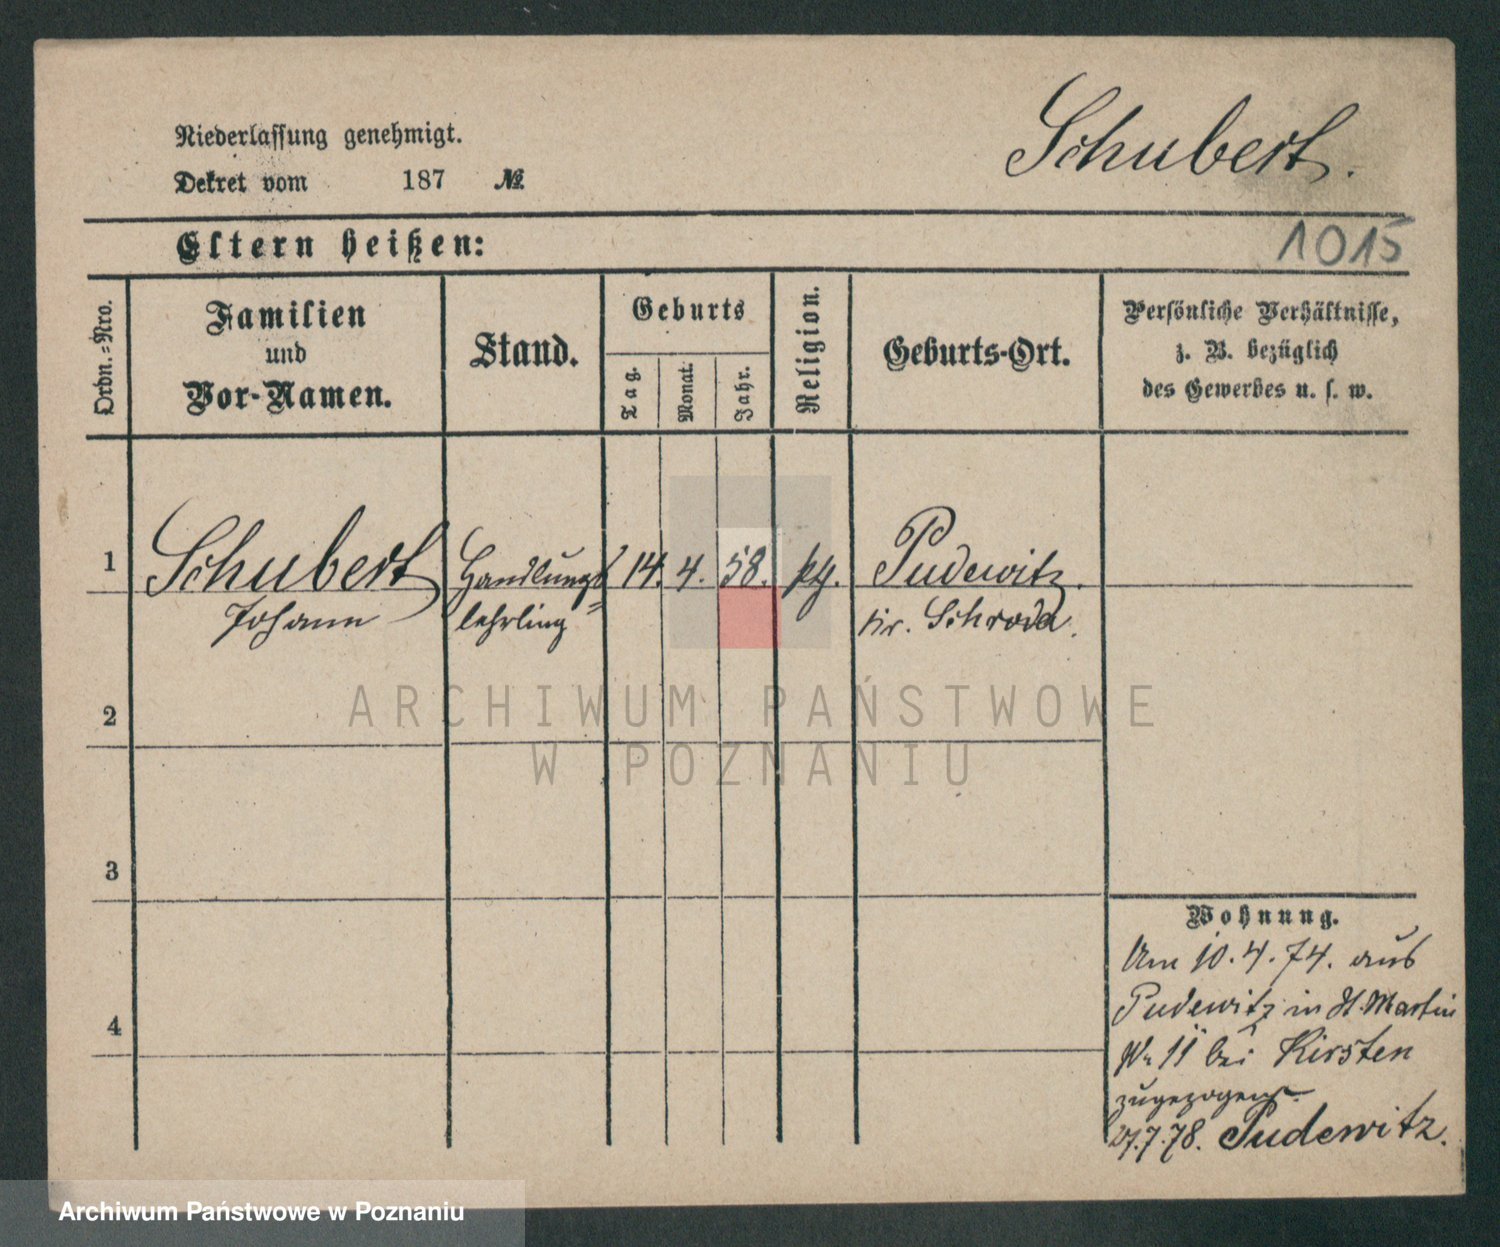 Schubert.
Niederlassung genehmigt.
Dekret vom 187 №
1015
Eltern heißen:
Ordn.-Nro.
Familien
und
Vor-Namen.
Stand.
Geburts
Tag.
Monat.
Jahr.
Religion.
Geburts-Ort.
Persönliche Verhältnisse,
z. B. bezüglich
des Gewerbes u. s. w.
1
Schubert
Johann
Handlungs
lehrling
14. 4. 58.
Pudewitz.
Kr. Schroda.
2
3
4
Wohnung.
Am 10.4.74. aus
Pudewitz in St. Martin
No 11 bei Kirsten
zugezogen.
27.7.78. Pudewitz.
ARCHIWUM PAŃSTWOWE
W POZNANIU
Archiwum Państwowe w Poznaniu